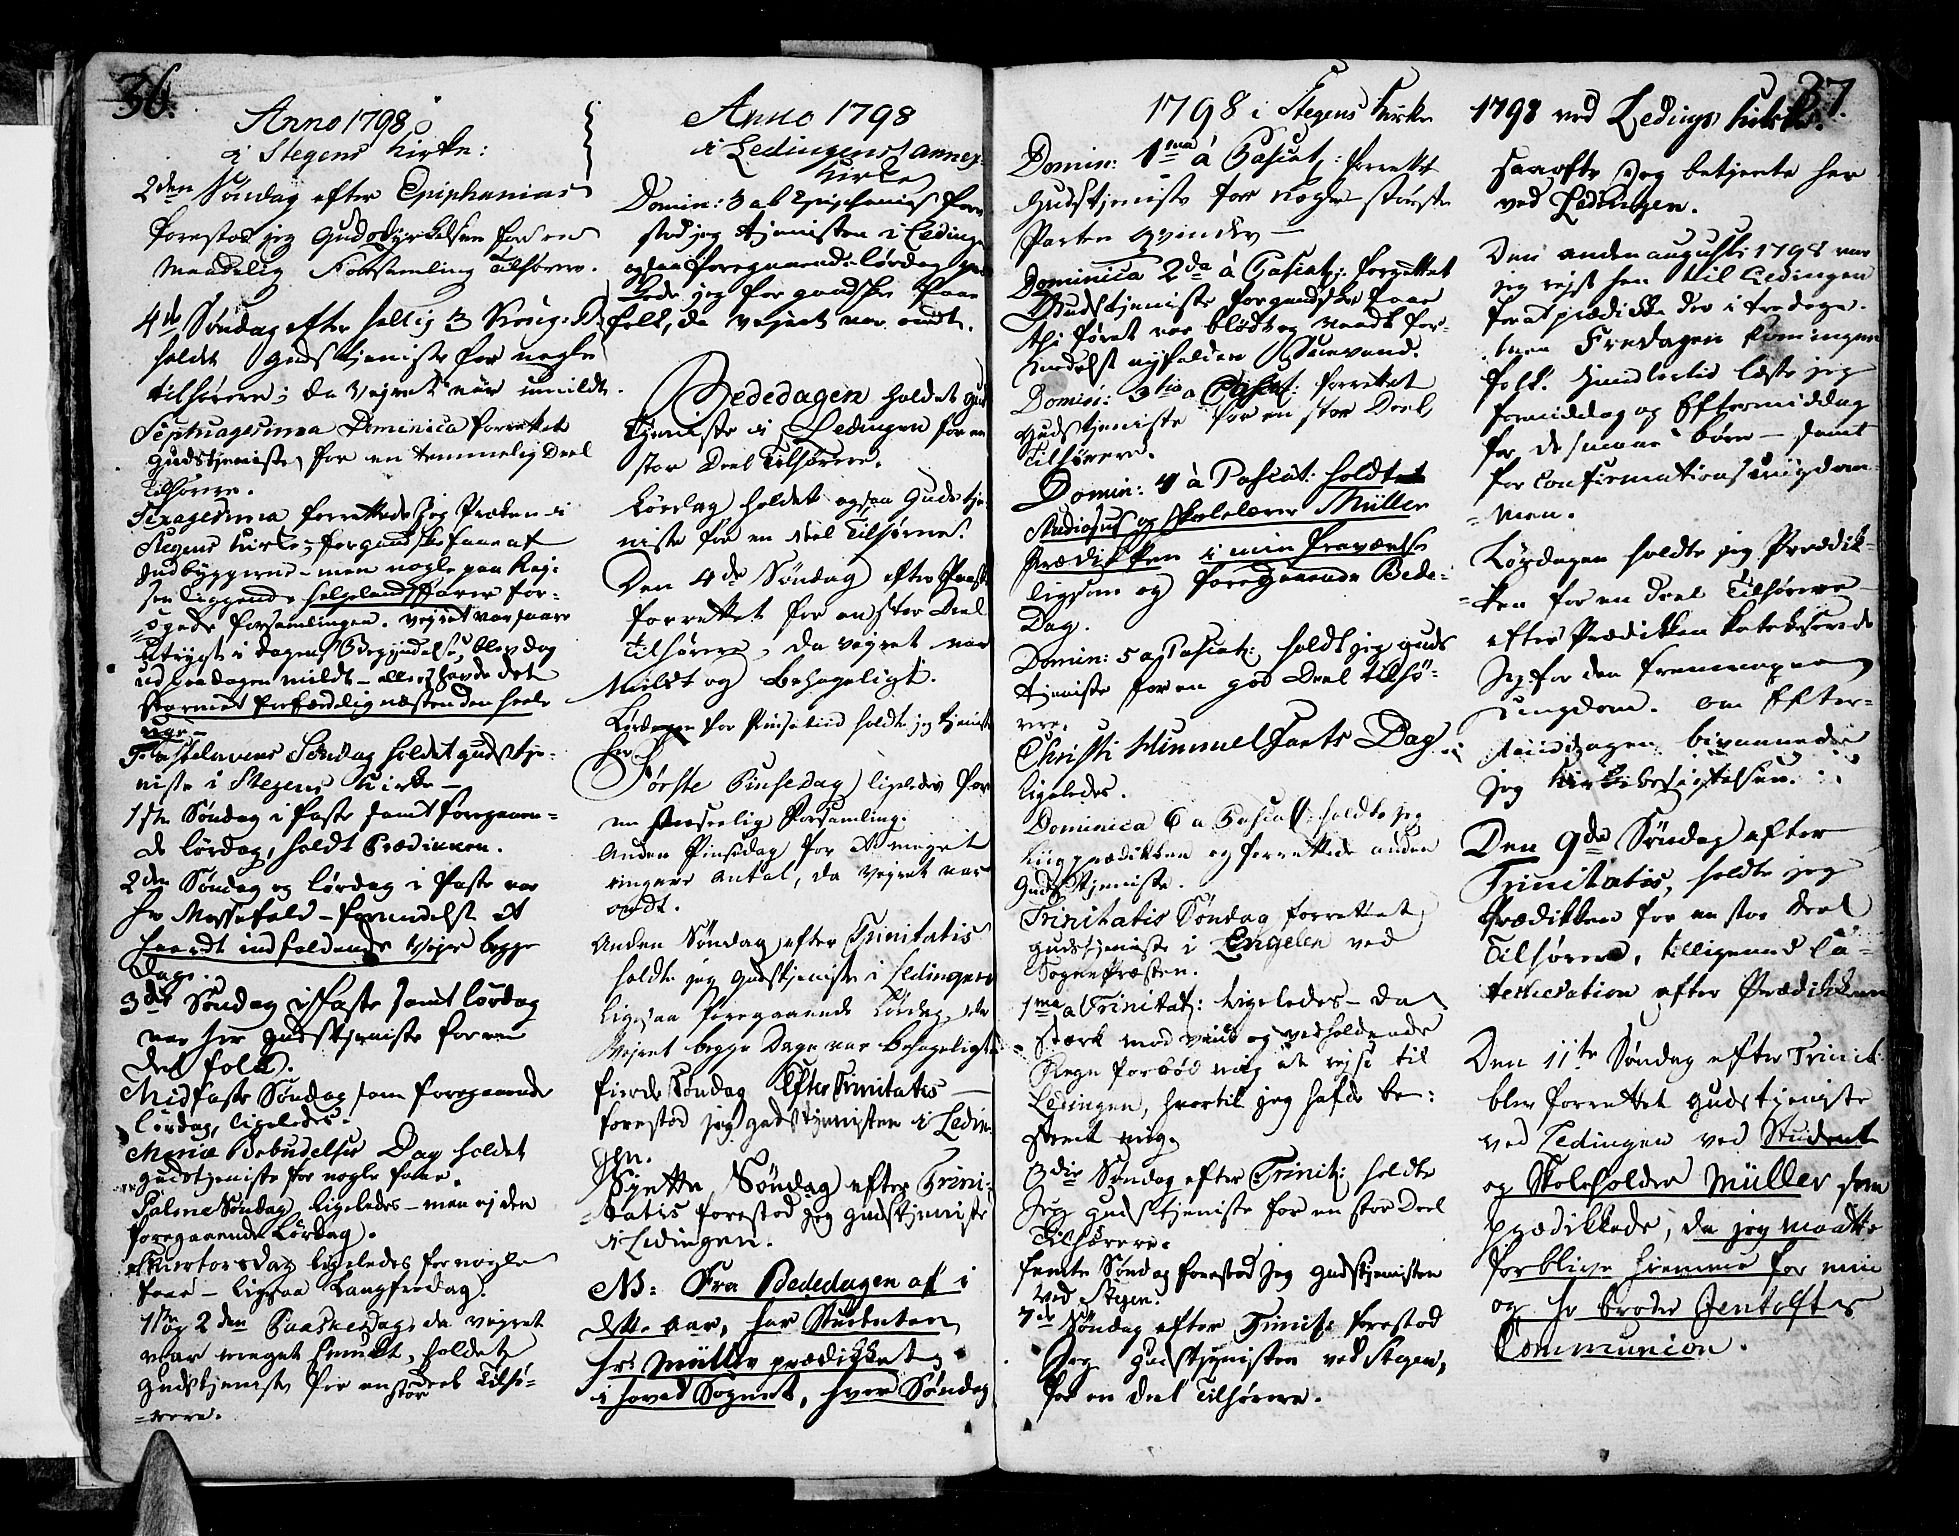 36.
Anno 1798
i Stegens Kirke:
2den Søndag efter Epiphanias
forestod jeg Gudsdyrkelsen for en
maadelig Forsamling Tilhørere.
4de Søndag efter hellig 3 Kong: D.
holdet Gudstjeniste for nogle
tilhørere; da Vejret var umildt.
Septuagesima Dominica forrettet
gudstjeniste for en temmelig Deel
Tilhørere.
Sexagesima forrettede jeg Præken i
Stegens Kirke, for ganske faae af
Indbyggerne - men nogle paa Rej-
sen liggende Helgelandsfarer for-
øgede forsamlingen. Vejret var saare
utrygt i dagens Begyndelse, blev dog
ud paa dagen mildt - ellers havde det
stormet forfærdelig næsten den heele
uge -
Fastelavens Søndag holdet gudstje-
niste i Stegens Kirke -
1ste Søndag i faste samt foregaaen-
de Lørdag, holdt Prædikken.
2den Søndag og Lørdag i faste var
her Messefald - formedelst et
haardt indfaldende Vejr begge
dage.
3die Søndag i faste samt Lørdag
var her gudstjeniste for en
deel folk.
Midfaste Søndag som foregaaende
Lørdag, ligeledes.
Mariæ Bebudelses Dag holdet
gudstjeniste for nogle faae.
Palme Søndag ligeledes - men ej den
foregaaende Lørdag.
Skiertorsdag ligeledes for nogle
faae - ligesaa Langfredag.
1ste og 2den Paaskedag, da vejret
var meget smukt, holdet
Gudstjeniste for en stor deel Tilhø-
rere.
Anno 1798
i Ledingens annex
Kirke
Domin: 3 ab Epiphanias fore
stod jeg tjenisten i Ledingen
ogsaa foregaaende Lørdag
for gandske faae
folk, da Vejret var ondt.
Bededagen holdet Gud
tjeniste i Ledingen for en
stor Deel Tilhørere.
Lørdag holdet ogsaa Gudstje-
niste for en deel Tilhørere.
Den 4de Søndag efter Paaske
forrettet for en stor Deel
Tilhørere, da Vejret var
Mildt og behageligt.
Lørdagen for Pinsetiid holdte jeg tjeniste
her
Første Pinsedag ligeledes for
en anseelig Forsamling.
Anden Pinsedag for et meget
ringere Antal, da Vejret var
ondt.
Anden Søndag efter Trinitatis
holdte jeg gudstjeniste i Ledingen
ligesaa foregaaende Lørdag, da
Vejret begge Dage var behageligt
fierde Søndag Efter Trinitatis -
forestod jeg gudstjenisten i Ledin-
gen.
Syette Søndag efter Trini-
tatis forestod jeg gudstjeniste
i Ledingen.
NB: Fra Bededagen af i
dette aar, har Studenten
Hr: Müller prædikket
i hoved Sognet, hver Søndag
1798 i Stegens Kirke
Domin: 1ma à Pascat: forrettet
Gudstjeniste for nogle største
Parten Qvinder -
Dominica 2da à Pascat: forrettet
Gudstjeniste for gandske faae
thi føret var blødt og vaadt for-
medelst nyfalden Sneevand.
Domin: 3tia a Pascat: forrettet
Gudstjeniste for en stor Deel
Tilhørere.
Domin: 4 à Pascat: holdt
Studiosus og skolelærer Müller
Prædikken i min fraværelse
ligesom og foregaaende Bede-
Dag.
Domin: 5 a Pascat: holdt jeg guds
tjeniste for en god Deel tilhø-
rere.
Christi Himmelfarts Dag
ligeledes.
Dominica 6 a Pascat: holdte jeg
Liigprædikken og forrettede anden
Gudstjeniste.
Trinitatis Søndag forrettet
gudstjeniste i Engelen ved
SognePræsten.
1ma a Trinitat: ligeledes - da
stærk modvind og vedholdende
Regn forbød mig at rejse til
Ledingen, hvortil jeg hafde be:
stemt mig.
3die Søndag efter Trinit: holdte
Jeg gudstjeniste for en stor Deel
Tilhørere.
femte Søndag forestod jeg gudstjenisten
ved Stegen.
7de Søndag efter Trinit: forestod
Jeg gudstjenisten ved Stegen,
for en deel Tilhørere.
37.
1798 ved Ledings Kirke.
Saaofte jeg betjente her
ved Ledingen.
Den anden augusti 1798 var
jeg rejst hen til Ledingen
for at prædikke der i tredage.
men Fredagen kom ingen
folk. Imidlertid læste jeg
formiddag og Eftermiddag
for de smaae børn - samt
for Confirmations ungdom-
men.
Lørdagen holdte jeg Prædik-
ken for en deel Tilhørere -
efter Prædikken katekiserede
jeg for den fremmøgne
Ungdom. om Efter-
middagen bivaanede
jeg Kirkebesigtelsen.
Den 9de Søndag efter
Trinitatis, holdte jeg
Prædikken for en stor deel
Tilhørere, tilligemed Ca-
techesation efter Prædikken
Den 11te Søndag efter Trinit:
blev forrettet gudstjeniste
ved Ledingen ved Student
og Skoleholder Müller som
prædikkede, da jeg maatte
forblive hiemme for min
og Hr broder Jentofts
Communion.